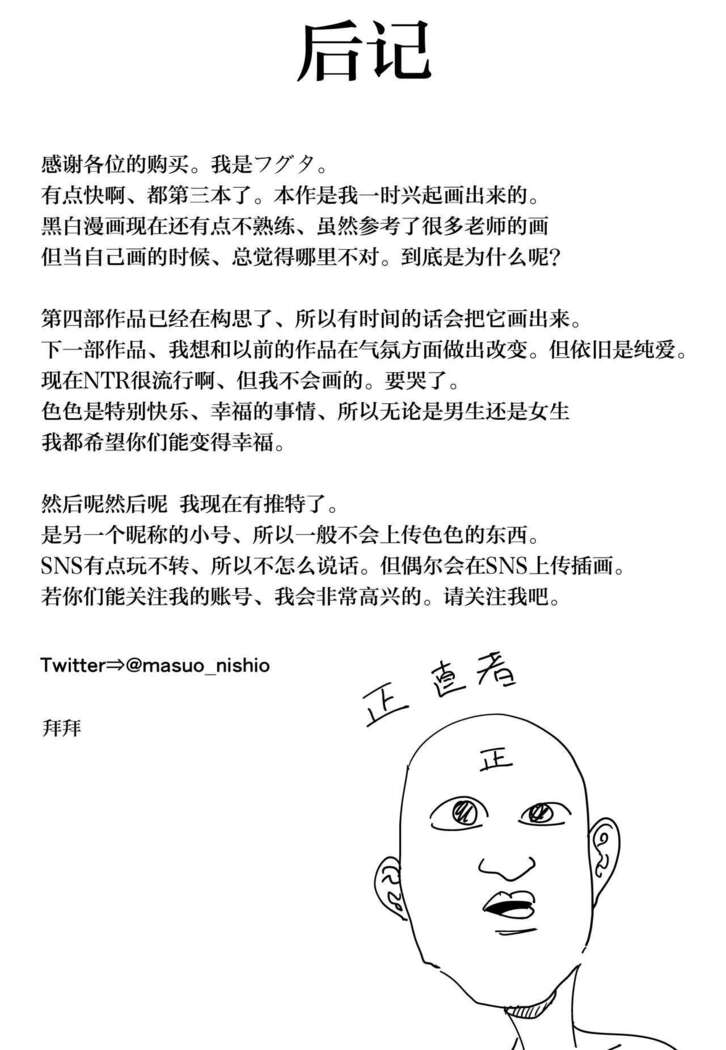 后记
感谢各位的购买。我是フグタ。
有点快啊、都第三本了。本作是我一时兴起画出来的。
黑白漫画现在还有点不熟练、虽然参考了很多老师的画
但当自己画的时候、总觉得哪里不对。到底是为什么呢？
第四部作品已经在构思了、所以有时间的话会把它画出来。
下一部作品、我想和以前的作品在气氛方面做出改变。但依旧是纯爱。
现在NTR很流行啊、但我不会画的。要哭了。
色色是特别快乐、幸福的事情、所以无论是男生还是女生
我都希望你们能变得幸福。
然后呢然后呢 我现在有推特了。
是另一个昵称的小号、所以一般不会上传色色的东西。
SNS有点玩不转、所以不怎么说话。但偶尔会在SNS上传插画。
若你们能关注我的账号、我会非常高兴的。请关注我吧。
Twitter⇒@masuo_nishio
拜拜
正直者
正